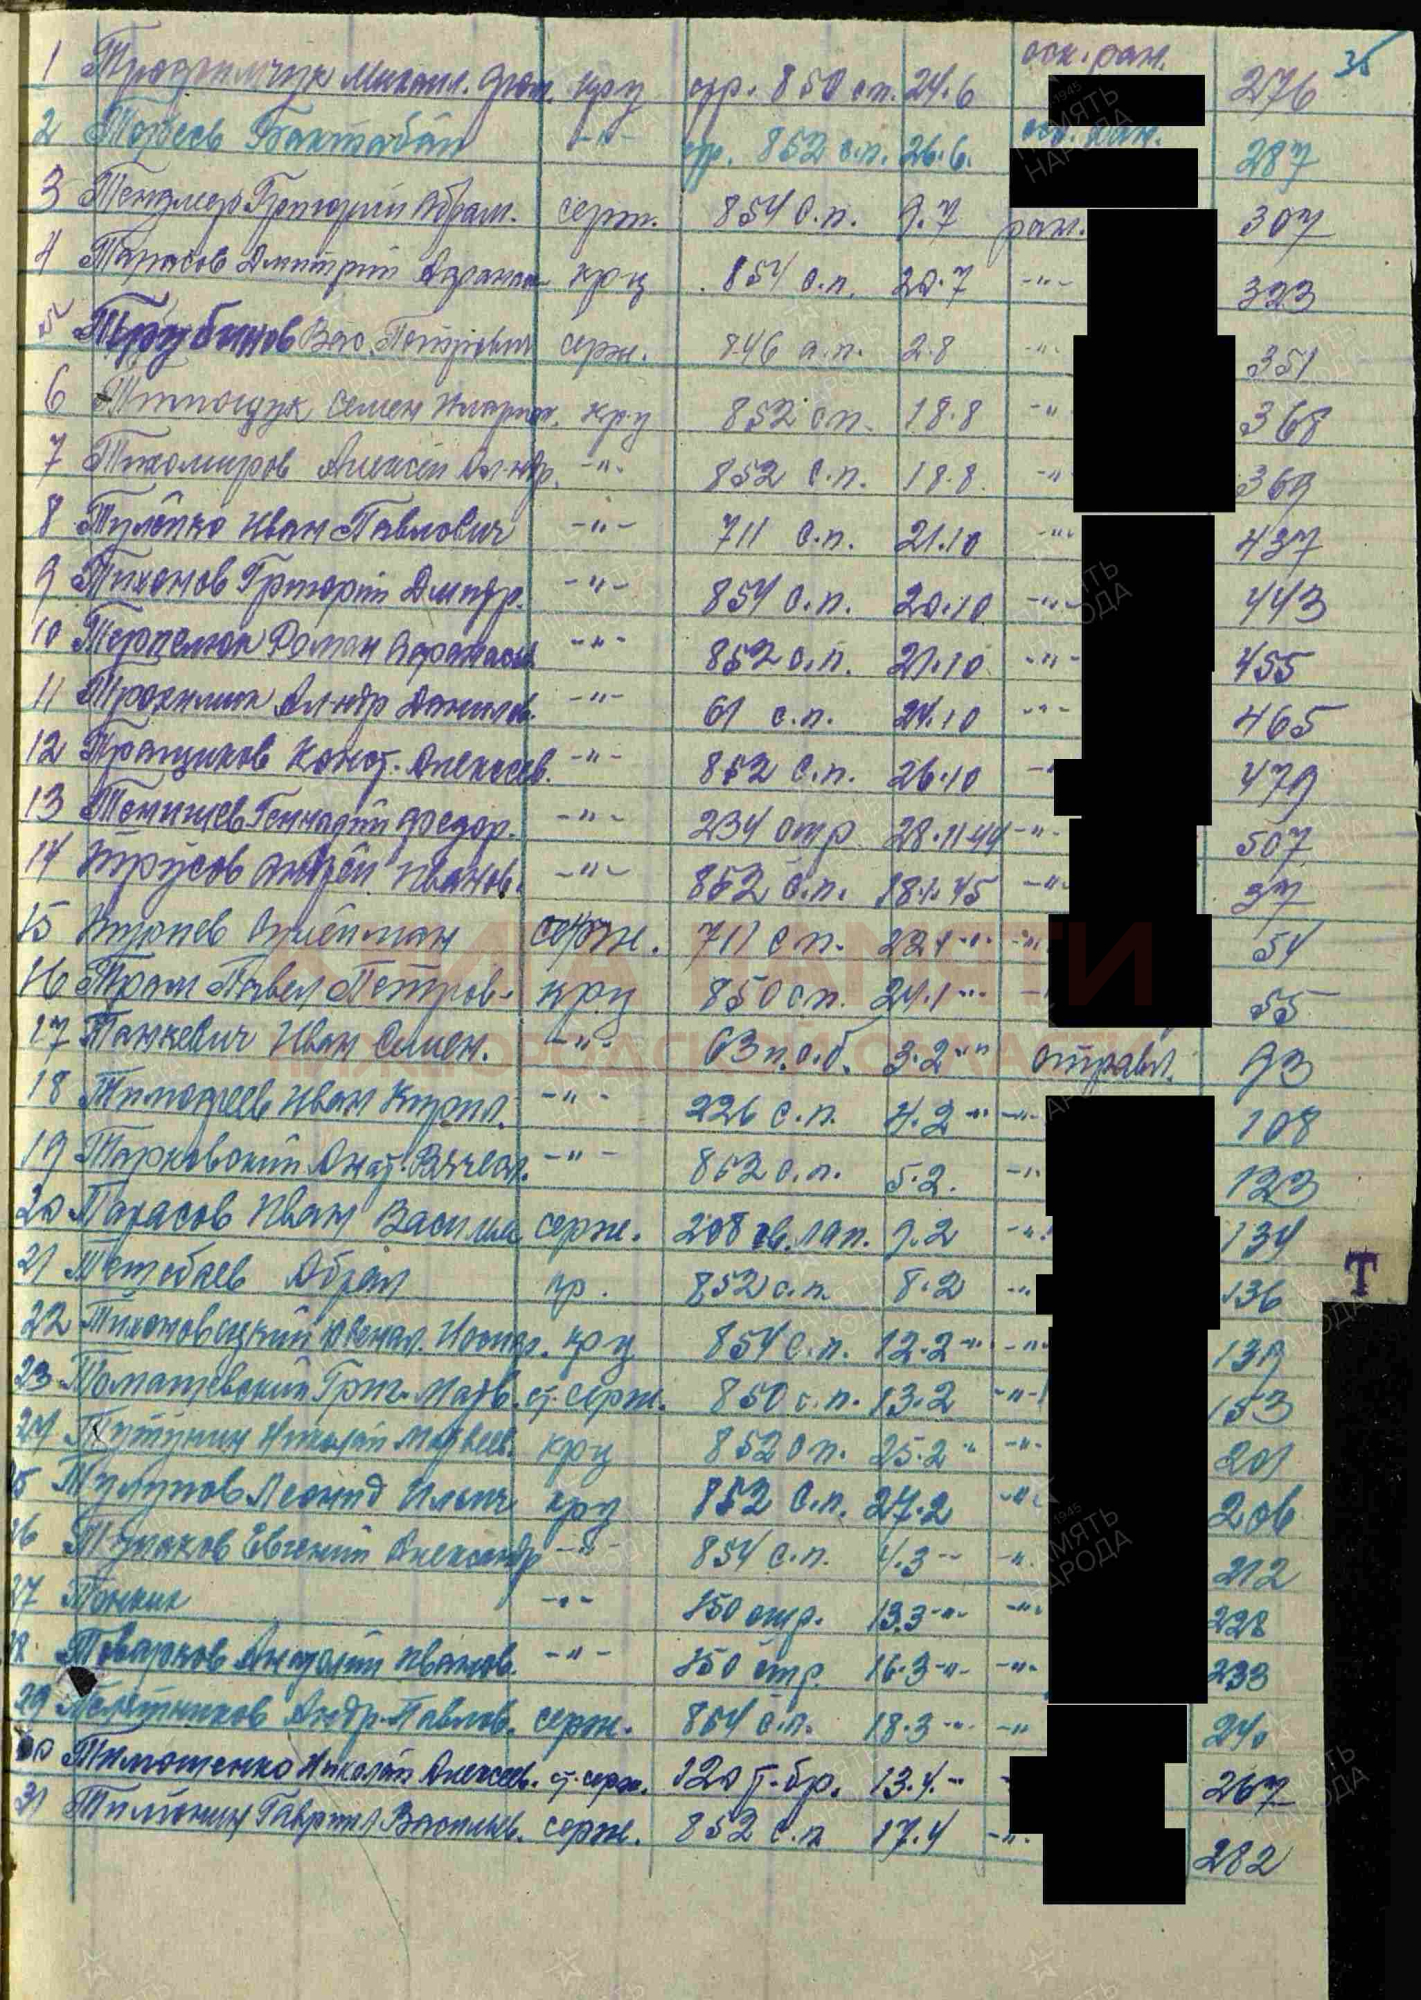 35
оск. ран.
1 Трофимчук Михаил. Фом. кр-ц стр. 850 сп. 24.6 276
оск. ран.
2 Бактабай -"- стр. 852 с.п. 26.6. 287
3 Григорий Абрам. серж. 854 с.п. 9.7 ран. 307
4 Тарасов Дмитрий Афанас. кр-ц 854 с.п. 20.7 -"- 323
5 Трубинов Вас. Петрович серж. 846 а.п. 2.8 -"- 351
6 Семен кр-ц 852 сп. 18.8 -"- 368
7 Тихомиров Алексей Ал-ндр. -"- 852 с.п. 18.8. -"- 369
8 Иван Павлович -"- 711 с.п. 21.10 -"- 437
9 Тихонов Григорий Дмитр. -"- 854 с.п. 20.10 -"- 443
10 Роман Афанасьев -"- 852 с.п. 21.10 -"- 455
11 Трофимик Ал-ндр Данилов. -"- 61 с.п. 24.10 -"- 465
12 Конст. Алексеев. -"- 852 с.п. 26.10 479
13 Геннадий Федор. -"- 234 отр 28.11.44 -"- 507
14 Трусов Андрей Иванов. -"- 852 с.п. 18.1.45 -"- 37
15 Сулейман серж. 711 сп. 22.1 -"- -"- 54
16 Трам Павел Петров. кр-ц 850 сп. 24.1 -"- 55
17 Танкевич Иван Семен. -"- 63 п.о.б. 3.2 -"- отравл. 93
18 Тимофеев Иван Кирил. -"- 226 с.п. 4.2 -"- -"- 108
19 Тарковский Анат. Вячесл. -"- 852 с.п. 5.2. -"- 123
20 Тарасов Иван Василье серж. 208 гв. лап. 9.2 -"- 134
21 Тетебаев Абрал гр. 852 с.п. 8.2 -"- 136
22 Тихоновецкий Ювенал. Иосиф. кр-ц 854 с.п. 12.2 -"- -"- 139
23 Томашевский Григ. Матв. ст. серж. 850 с.п. 13.2 -"- 153
24 Тутунин Николай Матвеев. кр-ц 852 сп. 25.2 -"- -"- 201
25 Тулупов Леонид Ильич кр-ц 852 с.п. 27.2 -"- 206
26 Евгений Александр -"- 854 с.п. 4.3 -"- -"- 212
27 Тонких -"- 150 отр. 13.3 -"- -"- 228
28 Товарков Анатолий Иванов. -"- 150 отр. 16.3 -"- -"- 233
29 Андр. Павлов. серж. 854 с.п. 18.3 -"- -"- 240
30 Тимошенко Николай Алексеев. ст. серж. 120 т.бр. 13.4. -"- 267
31 Гаврил Васильев. серж. 852 с.п. 17.4 -"- 282
Т
КНИГА ПАМЯТИ
НИЖЕГОРОДСКОЙ ОБЛАСТИ
ПАМЯТЬ НАРОДА